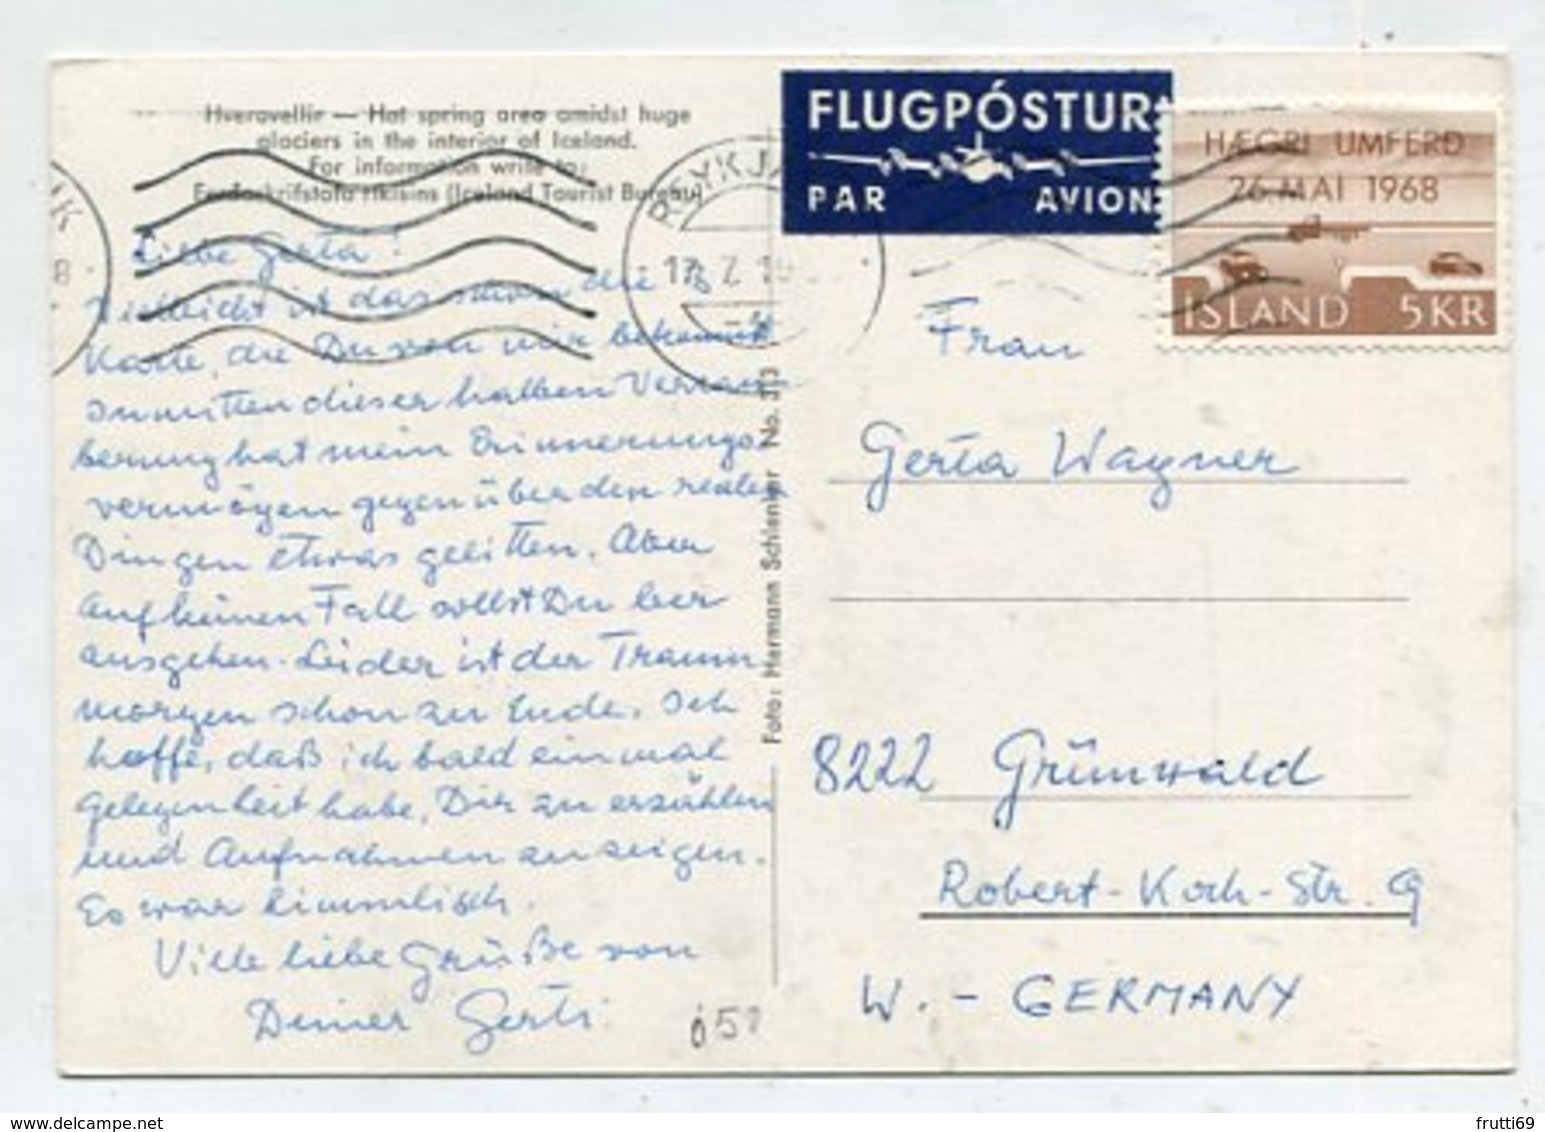 Hveravellir — Hot spring area amidst huge
glaciers in the interior of Iceland.
For information write to:
Ferdaskrifstofa rikisins (Iceland Tourist Bureau)
FLUGPÓSTUR
PAR AVION
HÆGRI UMFERD
26. MAI 1968
ISLAND 5KR
REYKJA
17. 7. 19
IK
8
Liebe Gerta!
Vielleicht ist das schon die
Karte, die Du von mir bekommst
Inmitten dieser halben Verzau-
berung hat mein Erinnerungs-
vermögen gegenüber den realen
Dingen etwas gelitten. Aber
auf keinen Fall sollst Du leer
ausgehen. Leider ist der Traum
morgen schon zu Ende. Ich
hoffe, daß ich bald einmal
Gelegenheit habe, Dir zu erzählen
und Aufnahmen zu zeigen.
Es war himmlisch.
Viele liebe Grüße von
Deiner Gerti
Foto: Hermann Schlenker No. 313
Frau
Gerta Wagner
8222 Grünwald
Robert-Koch-Str. 9
W. - GERMANY
frutti69